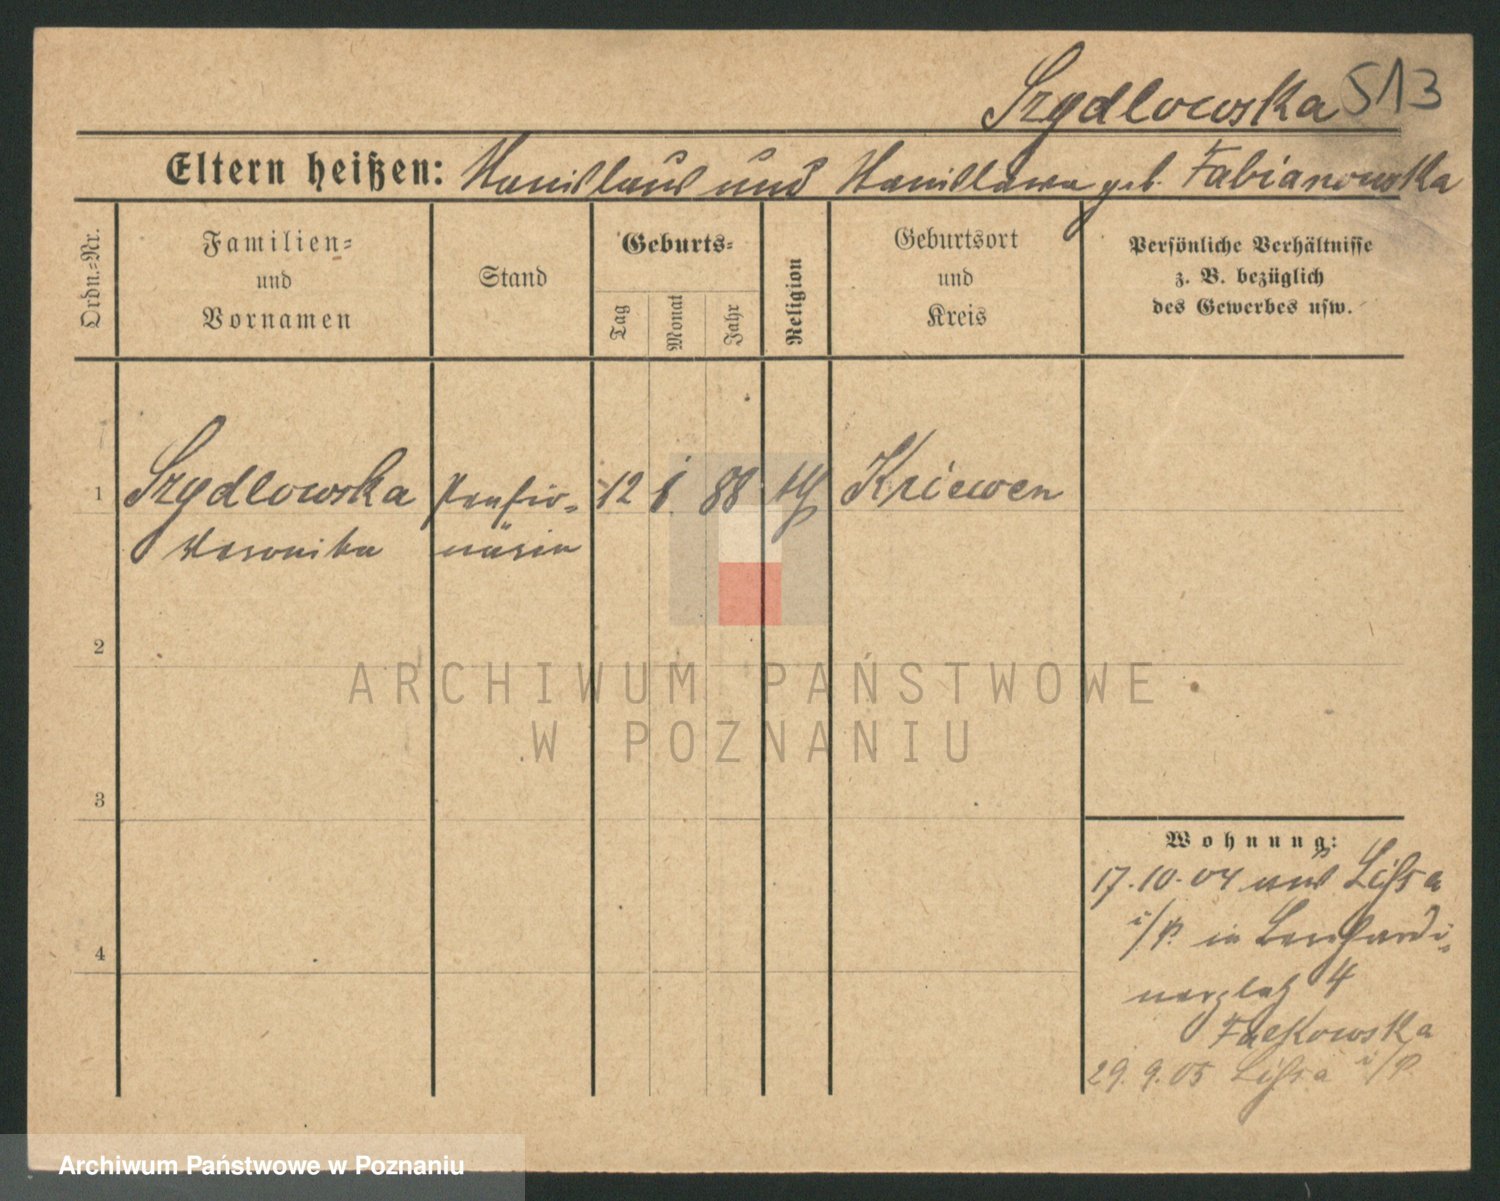 Szydlowska 513
Eltern heißen: Stanislaus und Stanislawa geb. Fabianowska
Ordn.=Nr.
Familien=
und
Vornamen
Stand
Geburts=
Tag
Monat
Jahr
Religion
Geburtsort
und
Kreis
Persönliche Verhältnisse
z. B. bezüglich
des Gewerbes usw.
1 Szydlowska Pensio= 12 1 88 Kriewen
Veronika närin
2
3
4
Wohnung:
17.10.04 aus Lissa
i/P. in Bernhardi=
nerplatz 4
Falkowska
29.9.05 Lissa i/P.
ARCHIWUM PAŃSTWOWE
W POZNANIU
Archiwum Państwowe w Poznaniu